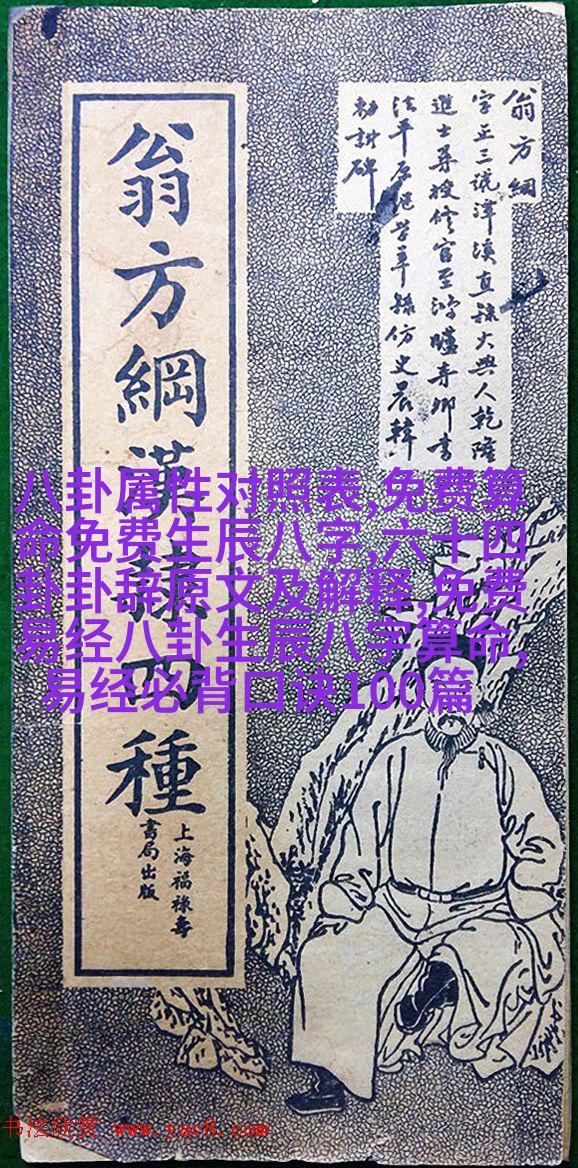 翁方綱
字正三號潭溪直隸大興人乾隆
進士尋授修官至鴻臚寺卿書
法平原繼學率更隸仿史晨韓
勑諸碑
翁方綱漢隸四種
上海福祿壽
書局出版
八卦属性对照表,免费算
命免费生辰八字,六十四
卦卦辞原文及解释,免费
易经八卦生辰八字算命,
易经必背口诀100篇
书法欣赏 www.yac8.com